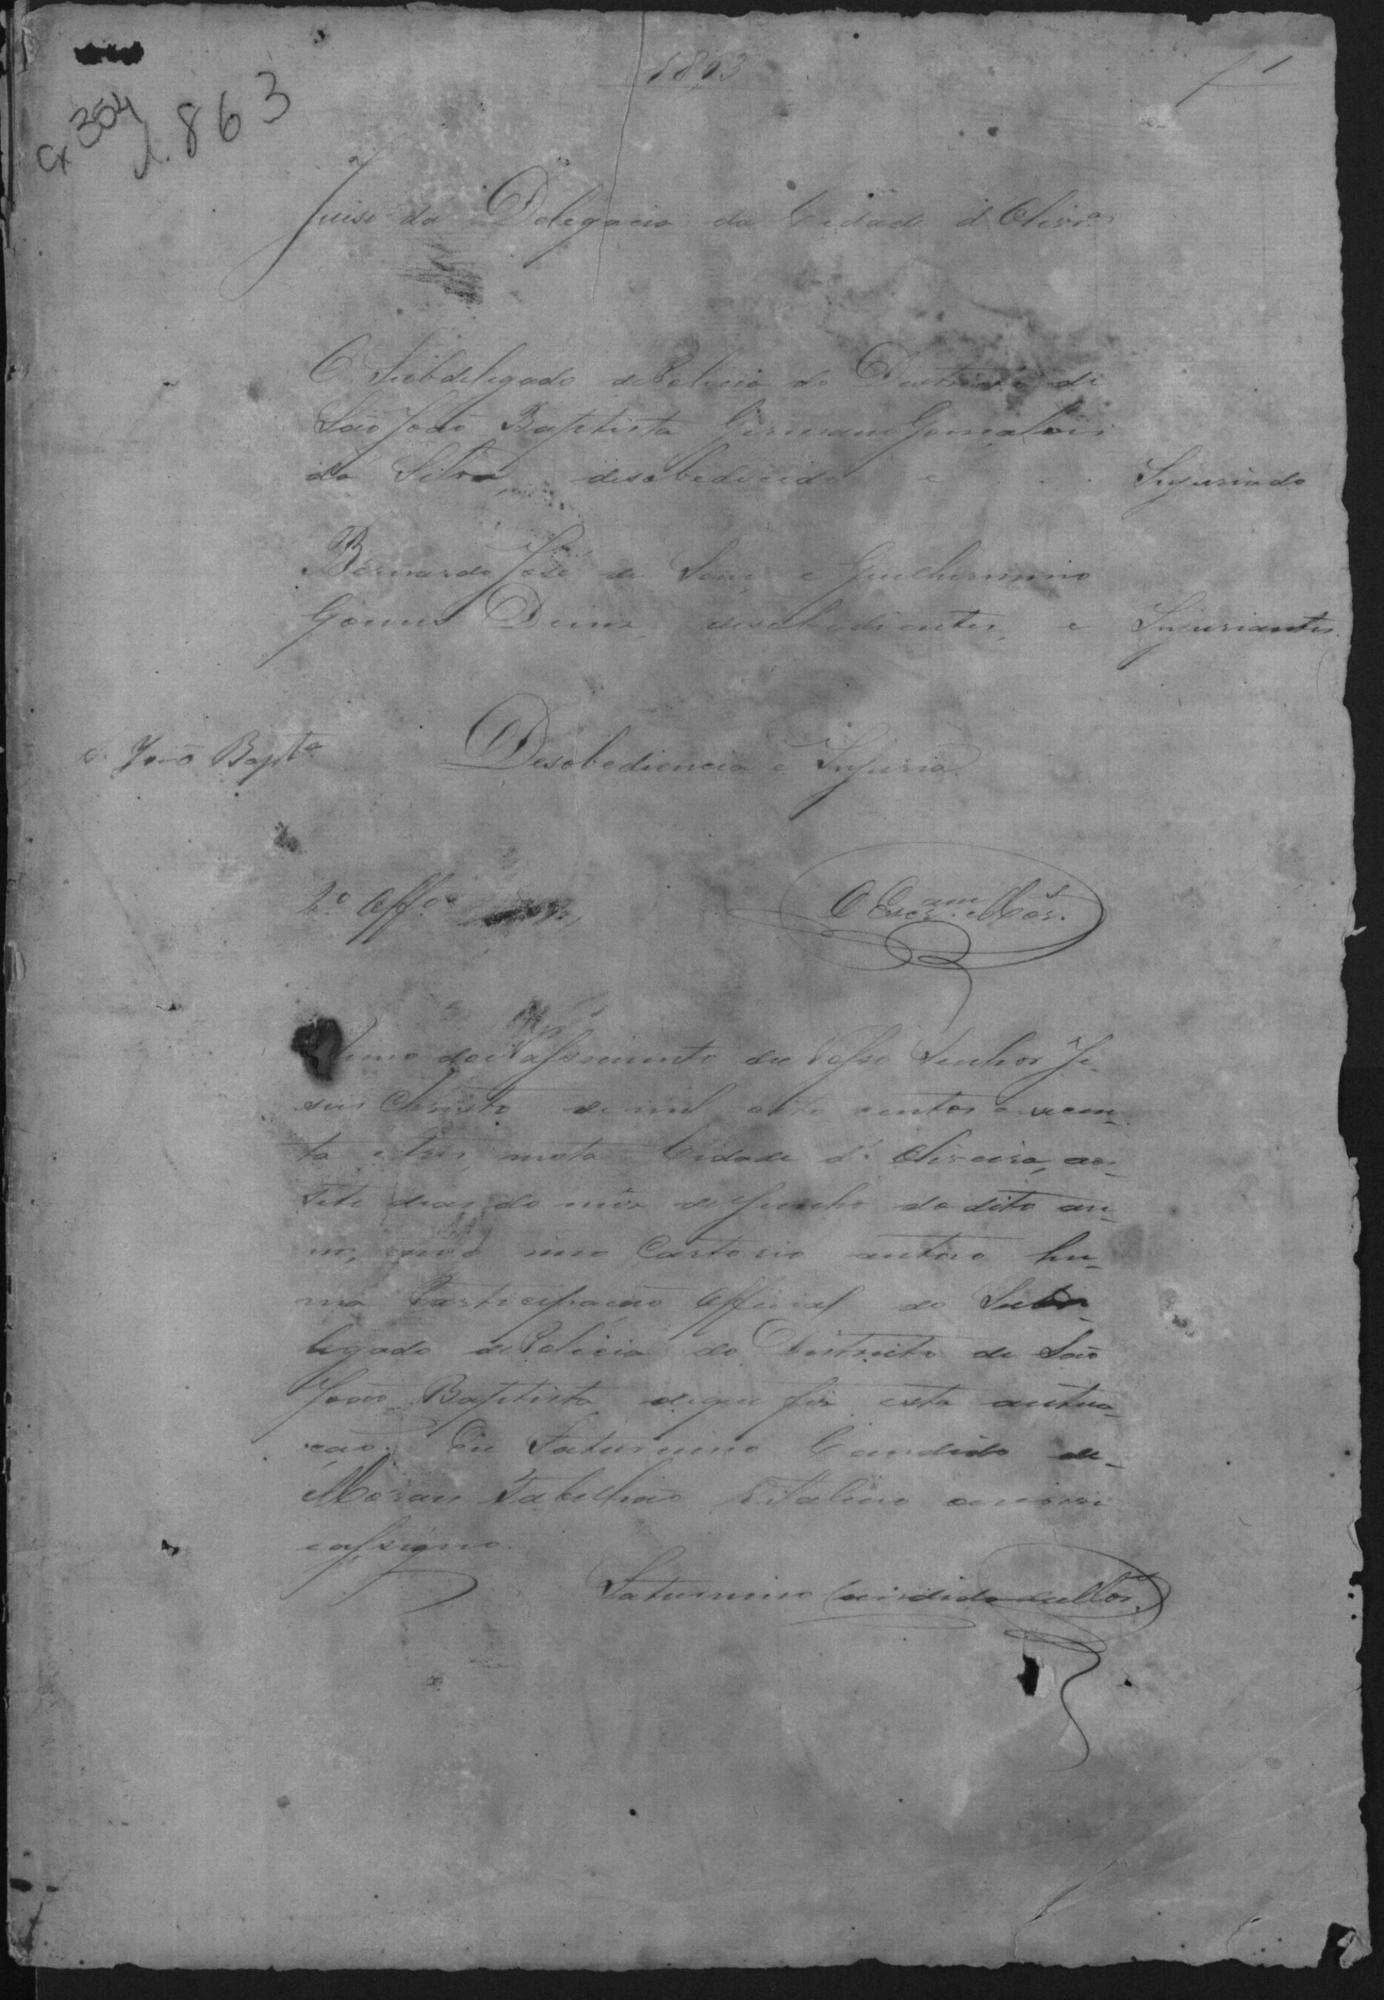 1893
f 1
Cx 304
d. 863
Juiso da Delegacia da Cidade d'Olivrª
O Subdelegado de Policia do Destricto de
São João Baptista Germano Gonçalves
da Silva, desobedecido e Injuriado
Bernardo José de e Guilhermino
Gomes Diniz, desobedientes, e Injuriantes.
S. João Bapta
Desobediencia e Injuria.
2º Offo
O Escram Mos.
Anno do Nassimento de Nosso Senhor Je-
sus Christo de mil oito centos e noven-
ta e tres, nesta Cidade d'Oliveira, aos
sete dias do mez de Junho do dito an-
no, meo Cartorio autoro hu-
ma Participação Official do Subde-
legado de Policia do Destricto de São
João Baptista deque fiz esta autua-
ção. Eu Saturnino Candido de
Moraes Tabelliao Vitalicio escrevi
e assigno.
Saturnino Candido de Mos.